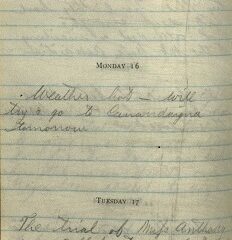 MONDAY 16
Weather hot – will
try & go to Canandaigua
tomorrow
TUESDAY 17
The trial of Miss Anthony